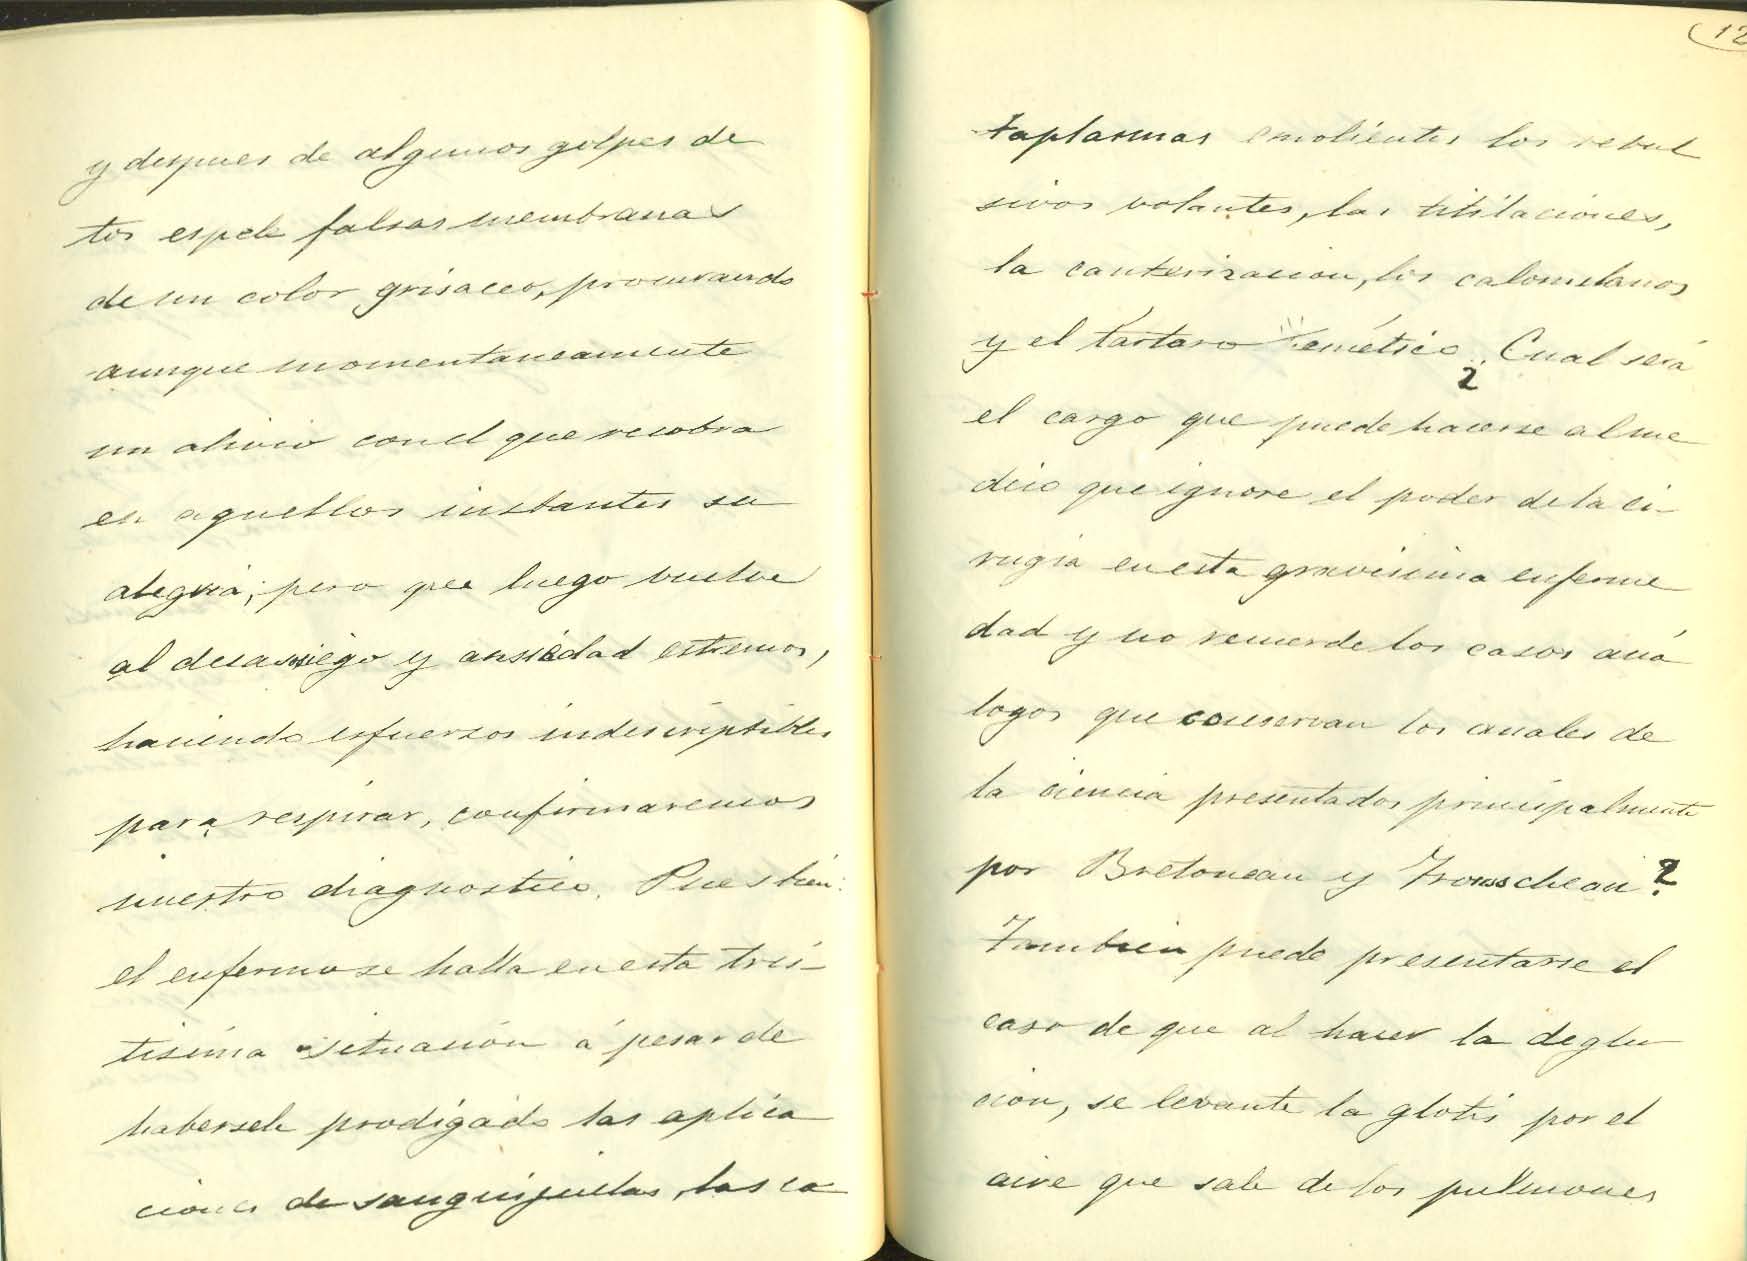 y despues de algunos golpes de
tos espele falsas membranas
de un color grisaceo, procurando
aunque momentaneamente
un alivio con el que recobra
en aquellos instantes su
alegria; pero que luego vuelve
al desasosiego y ansiedad estremos,
haciendo esfuerzos indescriptibles
para respirar, confirmaremos
nuestro diagnostico. Pues bien:
el enfermo se halla en esta tris-
tisima situación á pesar de
habersele prodigado las aplica
ciones de sanguijuelas, las ca
12
taplasmas emolientes los revul
sivos volantes, las titilaciones,
la cauterizacion, los calomelanos
y el tártaro emético. ¿Cual será
el cargo que puede hacerse al me
dico que ignore el poder de la ci-
rugia en esta gravisima enferme
dad y no recuerde los casos aná
logos que conservan los anales de
la ciencia presentados principalmente
por Bretoneau y Trousscheau?
Tambien puede presentarse el
caso de que al hacer la deglu
cion, se levante la glotis por el
aire que sale de los pulmones